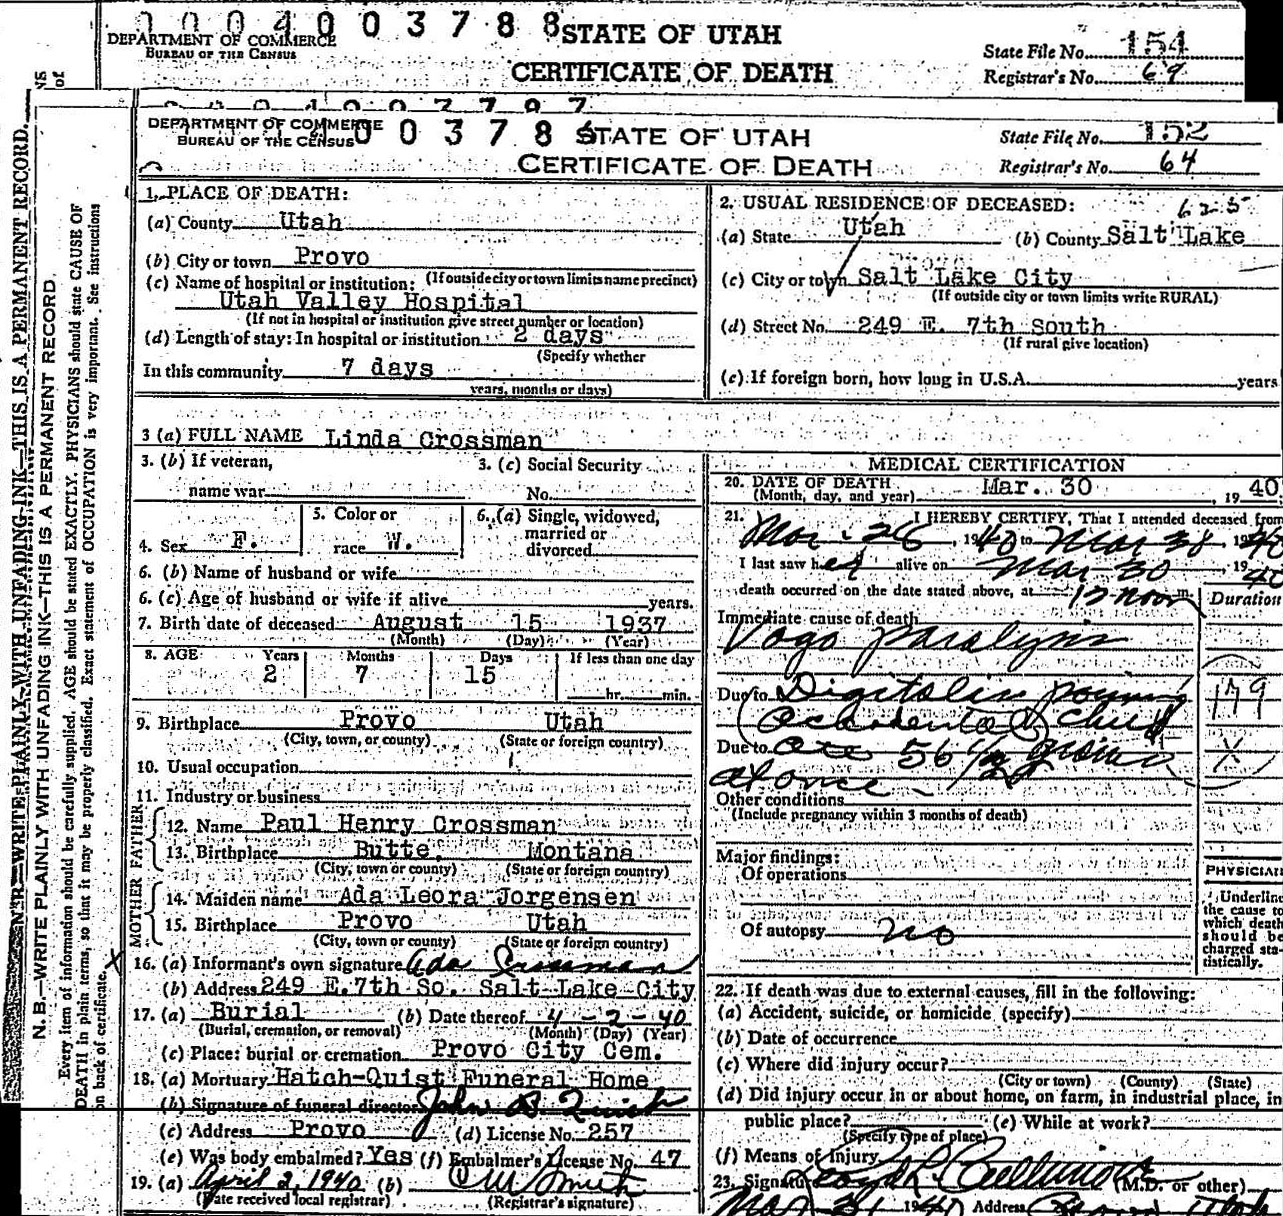 0004003788 STATE OF UTAH
DEPARTMENT OF COMMERCE
BUREAU OF THE CENSUS
CERTIFICATE OF DEATH
State File No. 154
Registrar's No. 69
DEPARTMENT OF COMMERCE
BUREAU OF THE CENSUS
STATE OF UTAH
CERTIFICATE OF DEATH
State File No. 152
Registrar's No. 64
WRITE PLAINLY WITH UNFADING INK—THIS IS A PERMANENT RECORD.
N. B.—WRITE PLAINLY WITH UNFADING INK—THIS IS A PERMANENT RECORD.
Every item of information should be carefully supplied. AGE should be stated EXACTLY. PHYSICIANS should state CAUSE OF
DEATH in plain terms, so that it may be properly classified. Exact statement of OCCUPATION is very important. See instructions
on back of certificate.
1. PLACE OF DEATH:
(a) County Utah
(b) City or town Provo
(If outside city or town limits name precinct)
(c) Name of hospital or institution:
Utah Valley Hospital
(If not in hospital or institution give street number or location)
(d) Length of stay: In hospital or institution 2 days
(Specify whether
In this community 7 days
years, months or days)
2. USUAL RESIDENCE OF DECEASED:
625
(a) State Utah (b) County Salt Lake
(c) City or town Salt Lake City
(If outside city or town limits write RURAL)
(d) Street No. 249 E. 7th South
(If rural give location)
(e) If foreign born, how long in U.S.A. years
3 (a) FULL NAME Linda Crossman
3. (b) If veteran,
name war
3. (c) Social Security
No.
4. Sex F.
5. Color or
race W.
6. (a) Single, widowed,
married or
divorced
6. (b) Name of husband or wife
6. (c) Age of husband or wife if alive years.
7. Birth date of deceased August 15 1937
(Month) (Day) (Year)
8. AGE Years Months Days If less than one day
2 7 15 hr. min.
9. Birthplace Provo Utah
(City, town, or county) (State or foreign country)
10. Usual occupation
11. Industry or business
FATHER
12. Name Paul Henry Crossman
13. Birthplace Butte, Montana
(City, town or county) (State or foreign country)
MOTHER
14. Maiden name Ada Leora Jorgensen
15. Birthplace Provo Utah
(City, town or county) (State or foreign country)
16. (a) Informant's own signature Ada Crossman
(b) Address 249 E. 7th So. Salt Lake City
17. (a) Burial (b) Date thereof 4-2-40
(Burial, cremation, or removal) (Month) (Day) (Year)
(c) Place: burial or cremation Provo City Cem.
18. (a) Mortuary Hatch-Quist Funeral Home
(b) Signature of funeral director
(c) Address Provo (d) License No. 257
(e) Was body embalmed? Yes (f) Embalmer's License No. 47
19. (a) April 2, 1940 (b)
(Date received local registrar) (Registrar's signature)
MEDICAL CERTIFICATION
20. DATE OF DEATH
(Month, day, and year) Mar. 30, 1940
21. I HEREBY CERTIFY, That I attended deceased from
Mar. 28, 1940 to Mar 30, 1940
I last saw her alive on Mar 30 1940
death occurred on the date stated above, at 12 noon m.
Duration
Immediate cause of death
Vago paralysis
Due to Digitalis
accidental child
179
Due to ate 56 1/2 grains
X
at once
Other conditions
(Include pregnancy within 3 months of death)
Major findings:
Of operations
Of autopsy no
PHYSICIAN
Underline
the cause to
which death
should be
charged sta-
tistically.
22. If death was due to external causes, fill in the following:
(a) Accident, suicide, or homicide (specify)
(b) Date of occurrence
(c) Where did injury occur?
(City or town) (County) (State)
(d) Did injury occur in or about home, on farm, in industrial place, in
public place? (e) While at work?
(Specify type of place)
(f) Means of injury
23. Signature (M.D. or other)
Mar 31 1940 Address Provo Utah